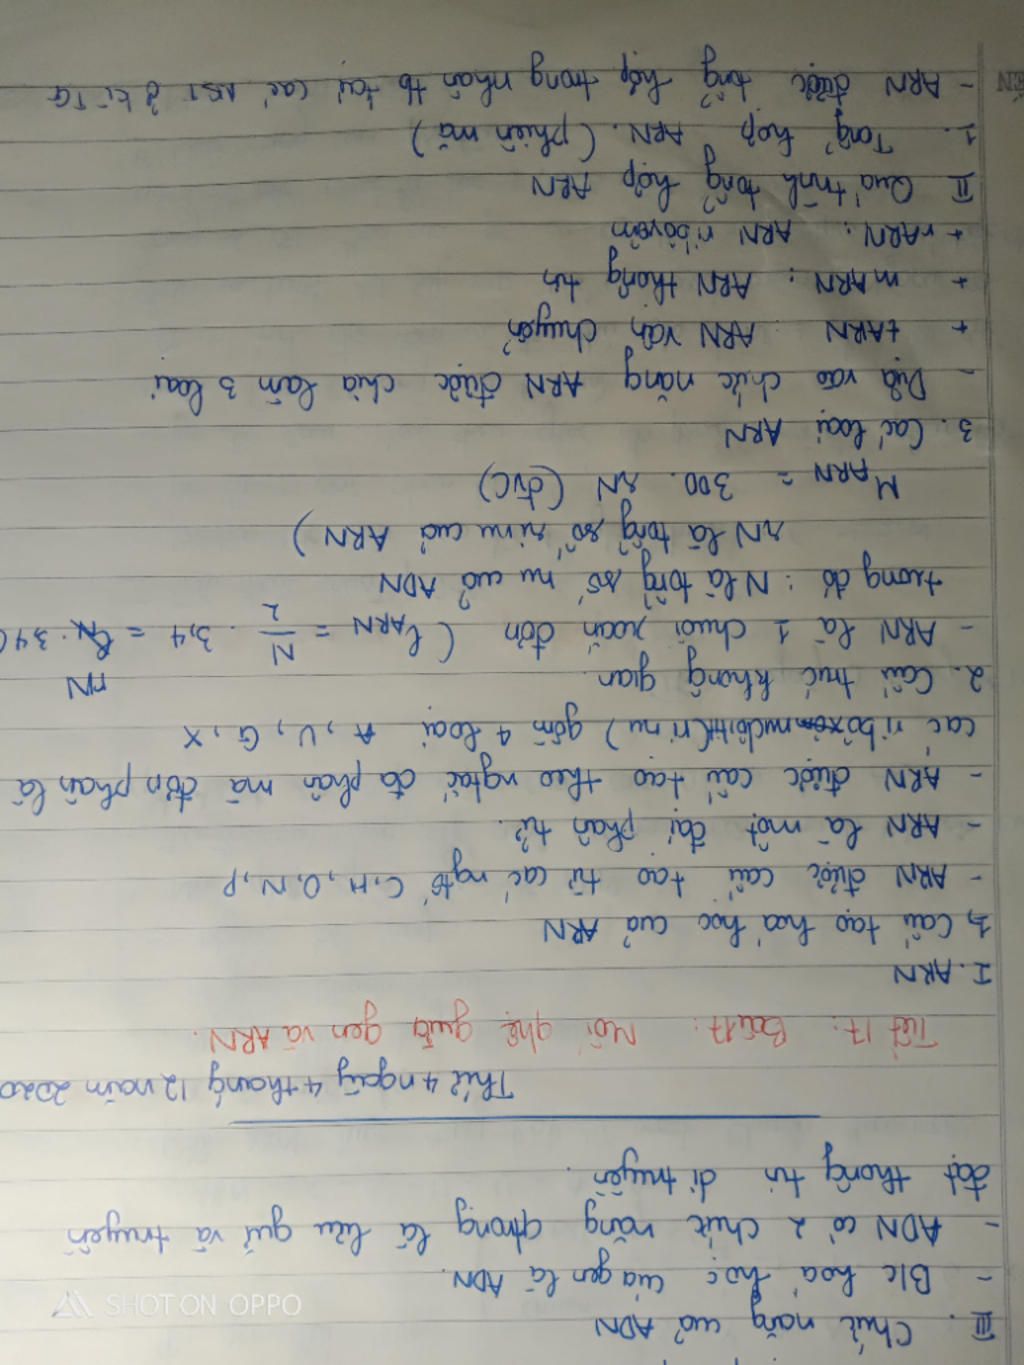 III. Chức năng cuả ADN
- B/c hoá học của gen là ADN.
- ADN có 2 chức năng qtrọng là lưu giữ và truyền
đạt thông tin di truyền.
Thứ 4 ngày 4 tháng 12 năm 2020
Tiết 17: Bài 17: Mối qhệ giữa gen và ARN.
I. ARN
1, Cấu tạo hoá học cuả ARN
- ARN được cấu tạo từ các ngtố C, H, O, N, P
- ARN là một đại phân tử.
- ARN được cấu tạo theo ngtắc đa phân mà đơn phân là
các ribô (ri nu) gồm 4 loại A, U, G, X
2. Cấu trúc không gian.
- ARN là 1 chuỗi xoắn đơn (lARN = N/2 . 3,4 = rN . 3,4
trong đó : N là tổng số nu cuả ADN
rN là tổng số ri nu cuả ARN)
MARN = 300. rN (đvC)
3. Các loại ARN
- Dựa vào chức năng ARN được chia làm 3 loại
+ tARN ARN vận chuyển
+ mARN : ARN thông tin
+ rARN : ARN ribôxôm
II Quá trình tổng hợp ARN
1. Tổng hợp ARN. (phiên mã)
- ARN được tổng hợp trong nhân tb tại các NST ở kì TG
SHOT ON OPPO